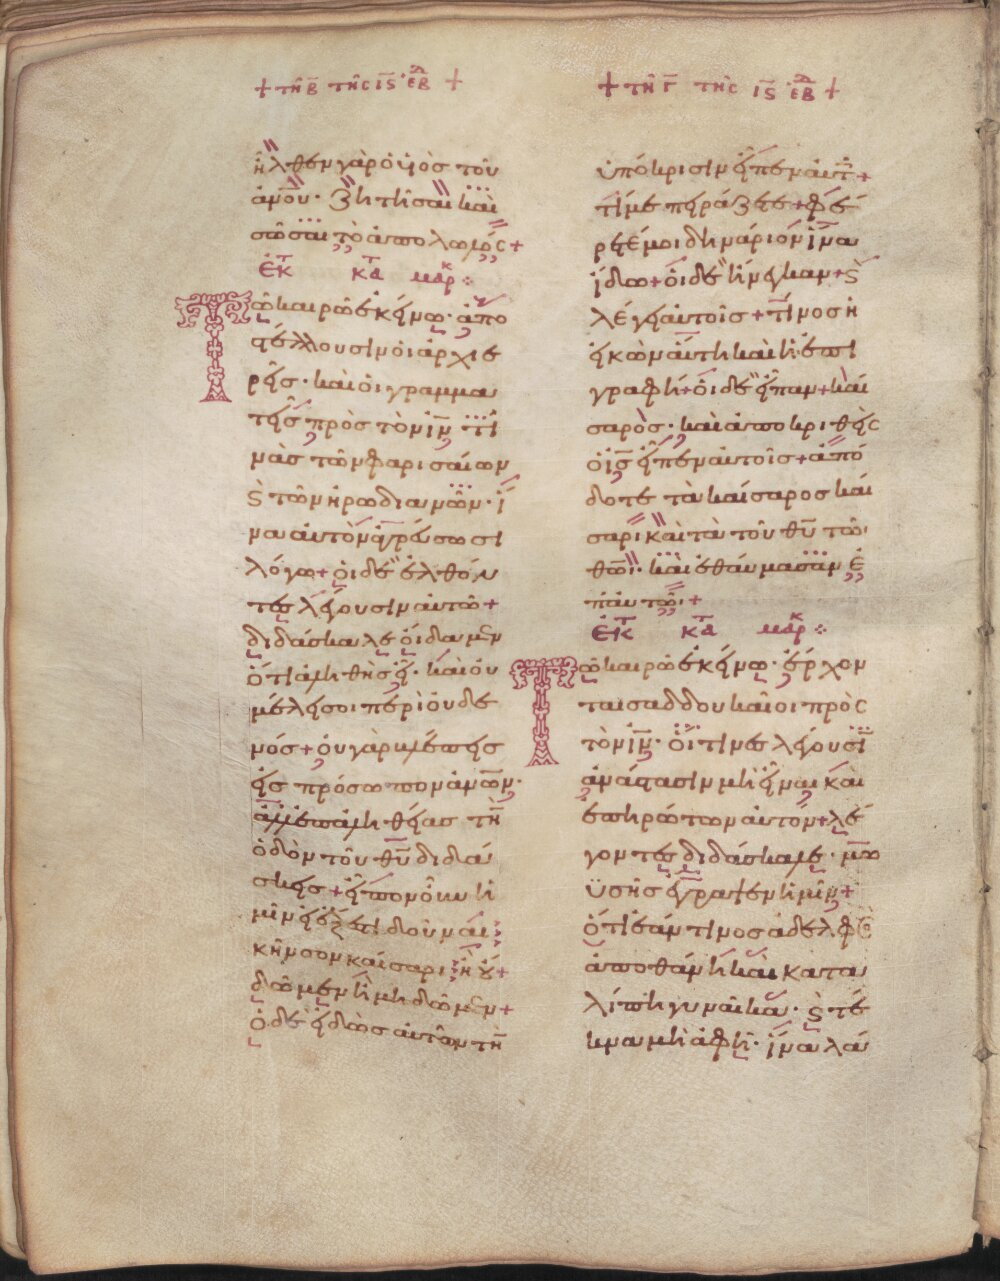 + τῆ β̅ τῆς ι̅ς̅ ἑβδ +
ἦλθεν γὰρ ὁ υἱὸς τοῦ
ἀν̅ου· ζητῆσαι καὶ
σῶσαι τὸ ἀπολωλός +
ἐκ τ κατα μαρκ ⁘
Τῶ καιρῶ ἐκείνω· ἀπο
στέλλουσιν οἱ ἀρχιε
ρεῖς· καὶ οἱ γραμμα
τεῖς πρὸς τὸν ἰ̅ν̅ τι
νὰς τῶν φαρισαίων
ϗ τῶν ἡρωδιανῶν· ἵ
να αὐτὸν ἀγρεύσωσι
λόγω + οἱ δὲ ἐλθόν
τες λέγουσιν αὐτῶ +
διδάσκαλε οἴδαμεν
ὅτι ἀληθὴς εἶ· καὶ οὐ
μέλει σοι περὶ οὐδε
νός + οὐ γὰρ βλέπεις
εἰς πρόσωπον ἀνων̅·
ἀλλ' ἐπ' ἀληθείας τὴν
ὁδὸν τοῦ θ̅υ̅ διδά
σκεις + εἰπὸν οὖν ἡ
μῖν εἰ ἔξεστι δοῦναι
κῆνσον καίσαρι ἢ οὔ +
δῶμεν ἢ μὴ δῶμεν +
ὁ δὲ εἰδὼς αὐτῶν τὴν
+ τῆ γ̅ τῆς ι̅ς̅ ἑβδ +
ὑπόκρισιν εἶπεν αὐτ +
τί με περάζετε + φέ
ρετέ μοι δηνάριον ἵνα
ἴδω + οἱ δὲ ἤνεγκαν + ϗ
λέγει αὐτοῖς + τίνος ἡ
εἰκὼν αὕτη καὶ ἡ ἐπι
γραφή + οἱ δὲ εἶπαν + καί
σαρος· καὶ ἀποκριθεὶς
ὁ ἰ̅ς̅ εἶπεν αὐτοῖς + ἀπό
δοτε τὰ καίσαρος καί
σαρι καὶ τὰ τοῦ θ̅υ̅ τῶ
θ̅ω̅· καὶ ἐθαύμασαν ἐ
π' αὐτῶ· +
ἐκ τ κατα μαρκ ⁘
Τῶ καιρῶ ἐκείνω· ἔρχον
ται σαδδουκαῖοι πρὸς
τὸν ἰ̅ν̅· οἵτινες λέγουσι
ἀνάστασιν μὴ εἶναι και
ἐπηρώτων αὐτόν + λέ
γοντες διδάσκαλε· μω
ϋσῆς ἔγραψεν ἡμῖν +
ὅτι ἐάν τινος ἀδελφὸς
ἀποθάνη καὶ κατα
λίπη γυναῖκα· ϗ τέ
κνα μὴ ἀφῆ· ἵνα λά